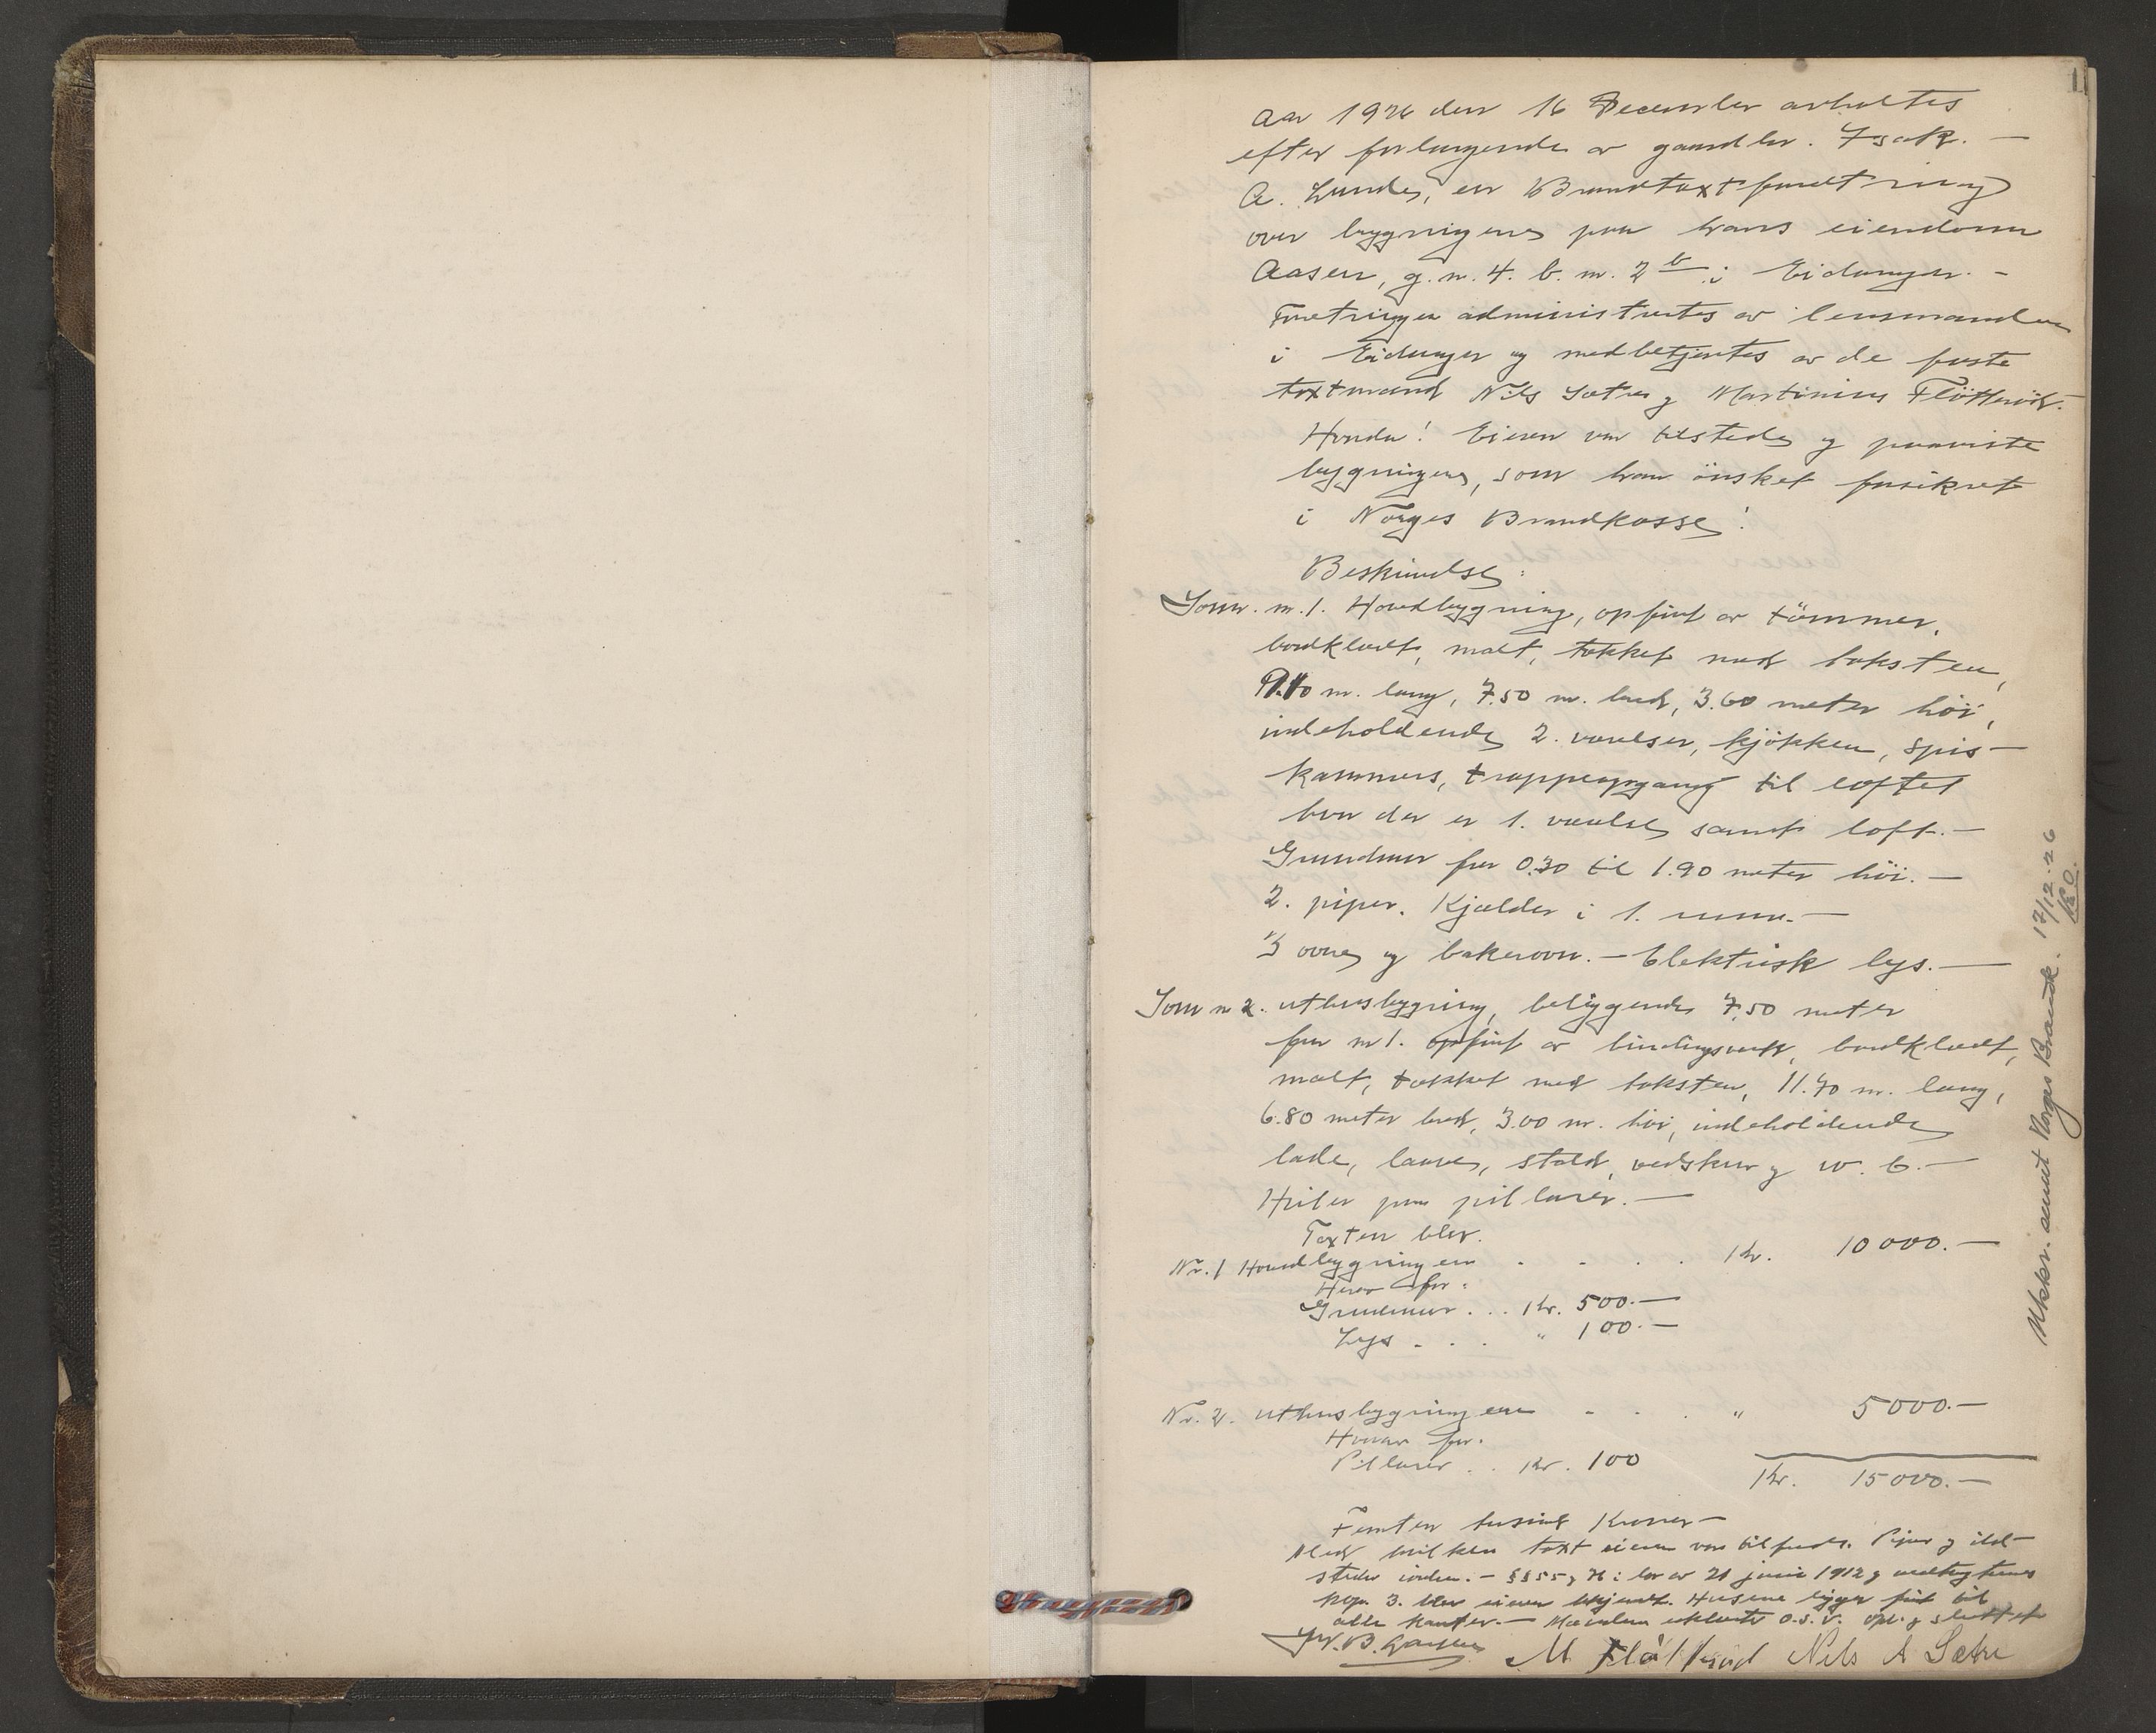 1
Aar 1926 den 16 December avholtes
efter forlangende av gaardbr. Isak. —
A. Lunde, en Brandtaxtforretning
over bygningene paa hans eiendom
Aasen, g. n. 4. b. n. 2 b i Eidanger. —
Forretningen administrertes av lensmanden
i Eidanger og medbetjentes av de faste
taxtmænd Nils Sætre og Martinius Flötteröd.
Hvorda! Eieren var tilstede og paaviste
bygningene, som han önsket forsikret
i Norges Brandkasse!
Beskrivelse:
Som. nr. 1. Hovedbygning, opfört av tömmer,
bordklædt, malt, tækket med taksten,
9.10 m. lang, 7.50 m. bred, 3.60 meter höi,
indeholdende 2. værelser, kjökken, spis-
kammers, trappeopgang til loftet
hvor der er 1. værelse samt loft. —
Grundmur fra 0.30 til 1.90 meter höi. —
2. piper. Kjælder i 1. rum. —
3 ovne og bakerovn. — Elektrisk lys. —
Som nr 2. uthusbygning, beliggende 7.50 meter
fra nr 1. opfört av bindingsverk, bordklædt,
malt, tækket med taksten, 11.70 m. lang,
6.80 meter bred, 3.00 m. höi, indeholdende
lade, laave, stald, vedskur og w. c. —
Hviler paa pillarer. —
Taxten blev.
Nr. 1 Hovedbygningen . . . . Kr. 10 000. —
Herav for:
Grundmur . . . Kr. 500. —
Lys . . . " 100. —
Nr. 2. uthusbygningen . . . " 5000. —
Herav for.
Pillarer . . Kr. 100
Kr. 15 000. —
Femten tusind Kroner —
Med hvilken taxt eieren var tilfreds. Piper og ild-
steder iorden. — §§ 55 og 76 i lov av 21 juni 1912 og vedtægternes
kap. 3. blev eieren bekjendt. Husene ligger frit til
alle kanter. — Mændene erklærte o. s. v. Opl. og sluttet
M Flåtteröd Nils A Sætre
Utskr. sendt Norges Brandk. 17/12-26